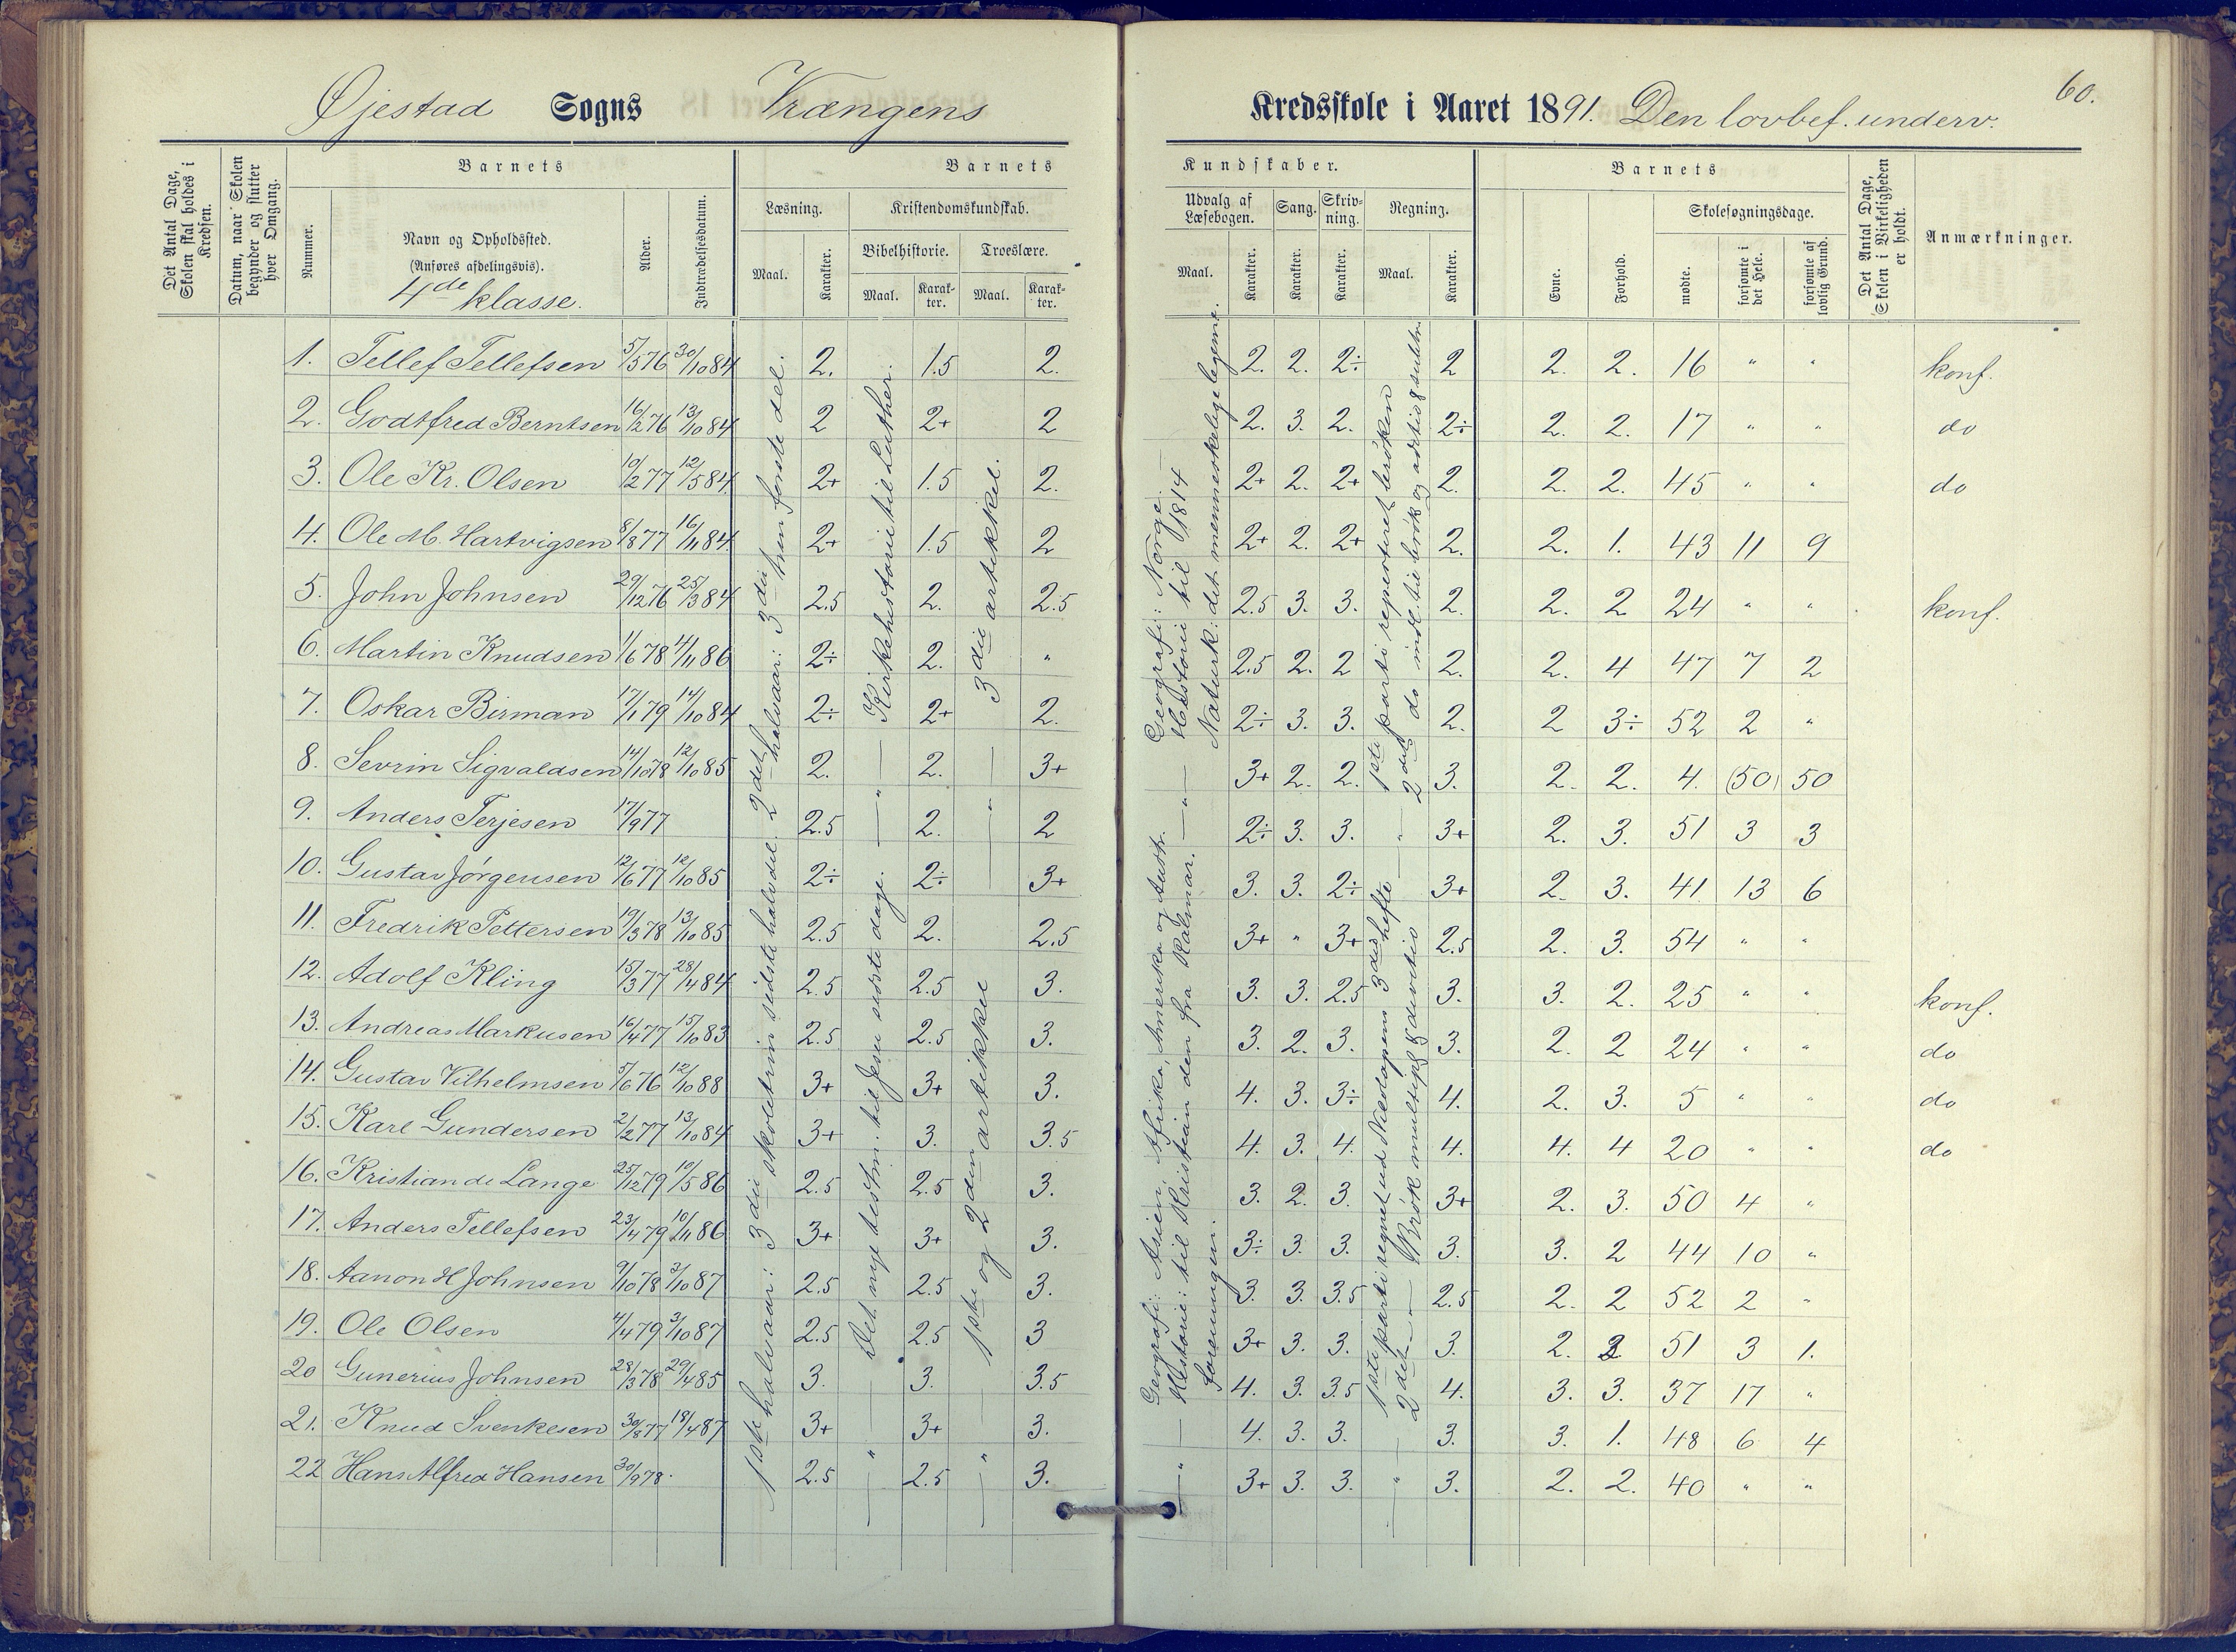 60.
Øjestad Sogns Vrængens Kredsskole i Aaret 1891. Den lovbef. underv.
Det Antal Dage, Skolen skal holdes i Kredsen.
Datum, naar Skolen begynder og slutter hver Omgang.
Barnets
Nummer.
Navn og Opholdssted.
(Anføres afdelingsvis).
4de klasse.
Alder.
Indtrædelsesdatum.
Barnets Kundskaber.
Læsning.
Maal. Karakter.
Kristendomskundskab.
Bibelhistorie. Troeslære.
Maal. Karakter. Maal. Karakter.
Udvalg af Læsebogen. Sang. Skrivning. Regning.
Maal. Karakter. Karakter. Karakter. Maal. Karakter.
Barnets
Evne. Forhold.
Skolesøgningsdage.
mødte. forsømte i det Hele. forsømte af lovlig Grund.
Det Antal Dage, Skolen i Virkeligheden er holdt.
Anmærkninger.
1. Tellef Tellefsen 5/5 76 30/10 84 2. 1.5 2. 2. 2. 2÷ 2 2. 2. 16 " " konf.
2. Godtfred Berntsen 16/2 76 13/10 84 2 2+ 2 2. 3. 2. 2÷ 2. 2. 17 " " do
3. Ole Kr. Olsen 10/2 77 12/5 84 2+ 1.5 2. 2+ 2. 2+ 2. 2. 2. 45 " " do
4. Ole M. Hartvigsen 8/8 77 16/11 84 2+ 1.5 2 2+ 2. 2+ 2. 2. 1. 43 11 9
5. John Johnsen 29/12 76 25/3 84 2.5 2. 2.5 2.5 3. 3. 2. 2. 2 24 " " konf.
6. Martin Knudsen 1/6 78 4/11 86 2÷ 2. " 2.5 2. 2 2. 2. 4 47 7 2
7. Oskar Birman 17/1 79 14/10 84 2÷ 2+ 2. 2÷ 3. 3. 2. 2 3÷ 52 2 "
8. Sevrin Sigvaldsen 14/10 78 12/10 85 2. 2. 3+ 3+ 2. 2. 3. 2. 2. 4. (50) 50
9. Anders Terjesen 17/9 77 2.5 2. 2 2÷ 3. 3. 3+ 2. 3. 51 3 3
10. Gustav Jørgensen 12/6 77 12/10 85 2÷ 2÷ 3+ 3. 3. 2÷ 3+ 2. 3. 41 13 6
11. Fredrik Pettersen 19/3 78 13/10 85 2.5 2. 2.5 3+ " 3+ 2.5 2. 3. 54 " "
12. Adolf Kling 15/3 77 28/4 84 2.5 2.5 3. 3. 3. 2.5 3. 3. 2. 25 " " konf.
13. Andreas Markusen 16/4 77 15/10 83 2.5 2.5 3. 3. 2. 3. 3. 2. 2 24 " " do
14. Gustav Vilhelmsen 5/6 76 12/10 88 3+ 3+ 3. 4. 3. 3÷ 4. 2. 3. 5 " " do
15. Karl Gundersen 2/2 77 13/10 84 3+ 3. 3.5 4. 3. 4. 4. 4. 4 20 " " do
16. Kristian de Lange 25/12 79 10/5 86 2.5 2.5 3. 3. 2. 3. 3+ 2. 3. 50 4 "
17. Anders Tellefsen 23/4 79 10/11 86 3+ 3+ 3. 3÷ 3. 3. 3. 3. 2 44 10 "
18. Aanon H Johnsen 9/10 78 3/10 87 2.5 2.5 3. 3. 3. 3.5 2.5 2. 2 52 2 "
19. Ole Olsen 4/4 79 3/10 87 2.5 2.5 3 3+ 3. 3. 3. 2. 2 51 3 1.
20 Gunerius Johnsen 28/3 78 29/4 85 3. 3. 3.5 4. 3. 3.5 4. 3. 3. 37 17 "
21. Knud Svenkesen 30/8 77 18/4 87 3+ 3+ 3. 4. 3. 3. 3. 3. 1. 48 6 4
22 Hans Alfred Hansen 30/9 78 2.5 2.5 3. 3+ 3. 3. 3. 2. 2. 40 " "
1ste halvaar: 3die skoletrin sidste halvdel. 2det halvaar: 3die trin første del.
Det nye testm. til Jesu sidste dage. — " — Kirkehistorie til Luther.
1ste og 2den artikkel — " — 3die artikkel.
Geografi: Asien, Afrika, Amerika og Austr.
Historie: til Kristian den fra Kalmar-
foreningen.
Geografi: Norge.
Historie til 1814
Naturk: det menneskelige legeme.
1ste parti regnet ud Nicolaysens 3die hefte
2det — Brøk multipl & division
1ste parti repeteret brøken
2det do indl. til brøk og addition & subtr.